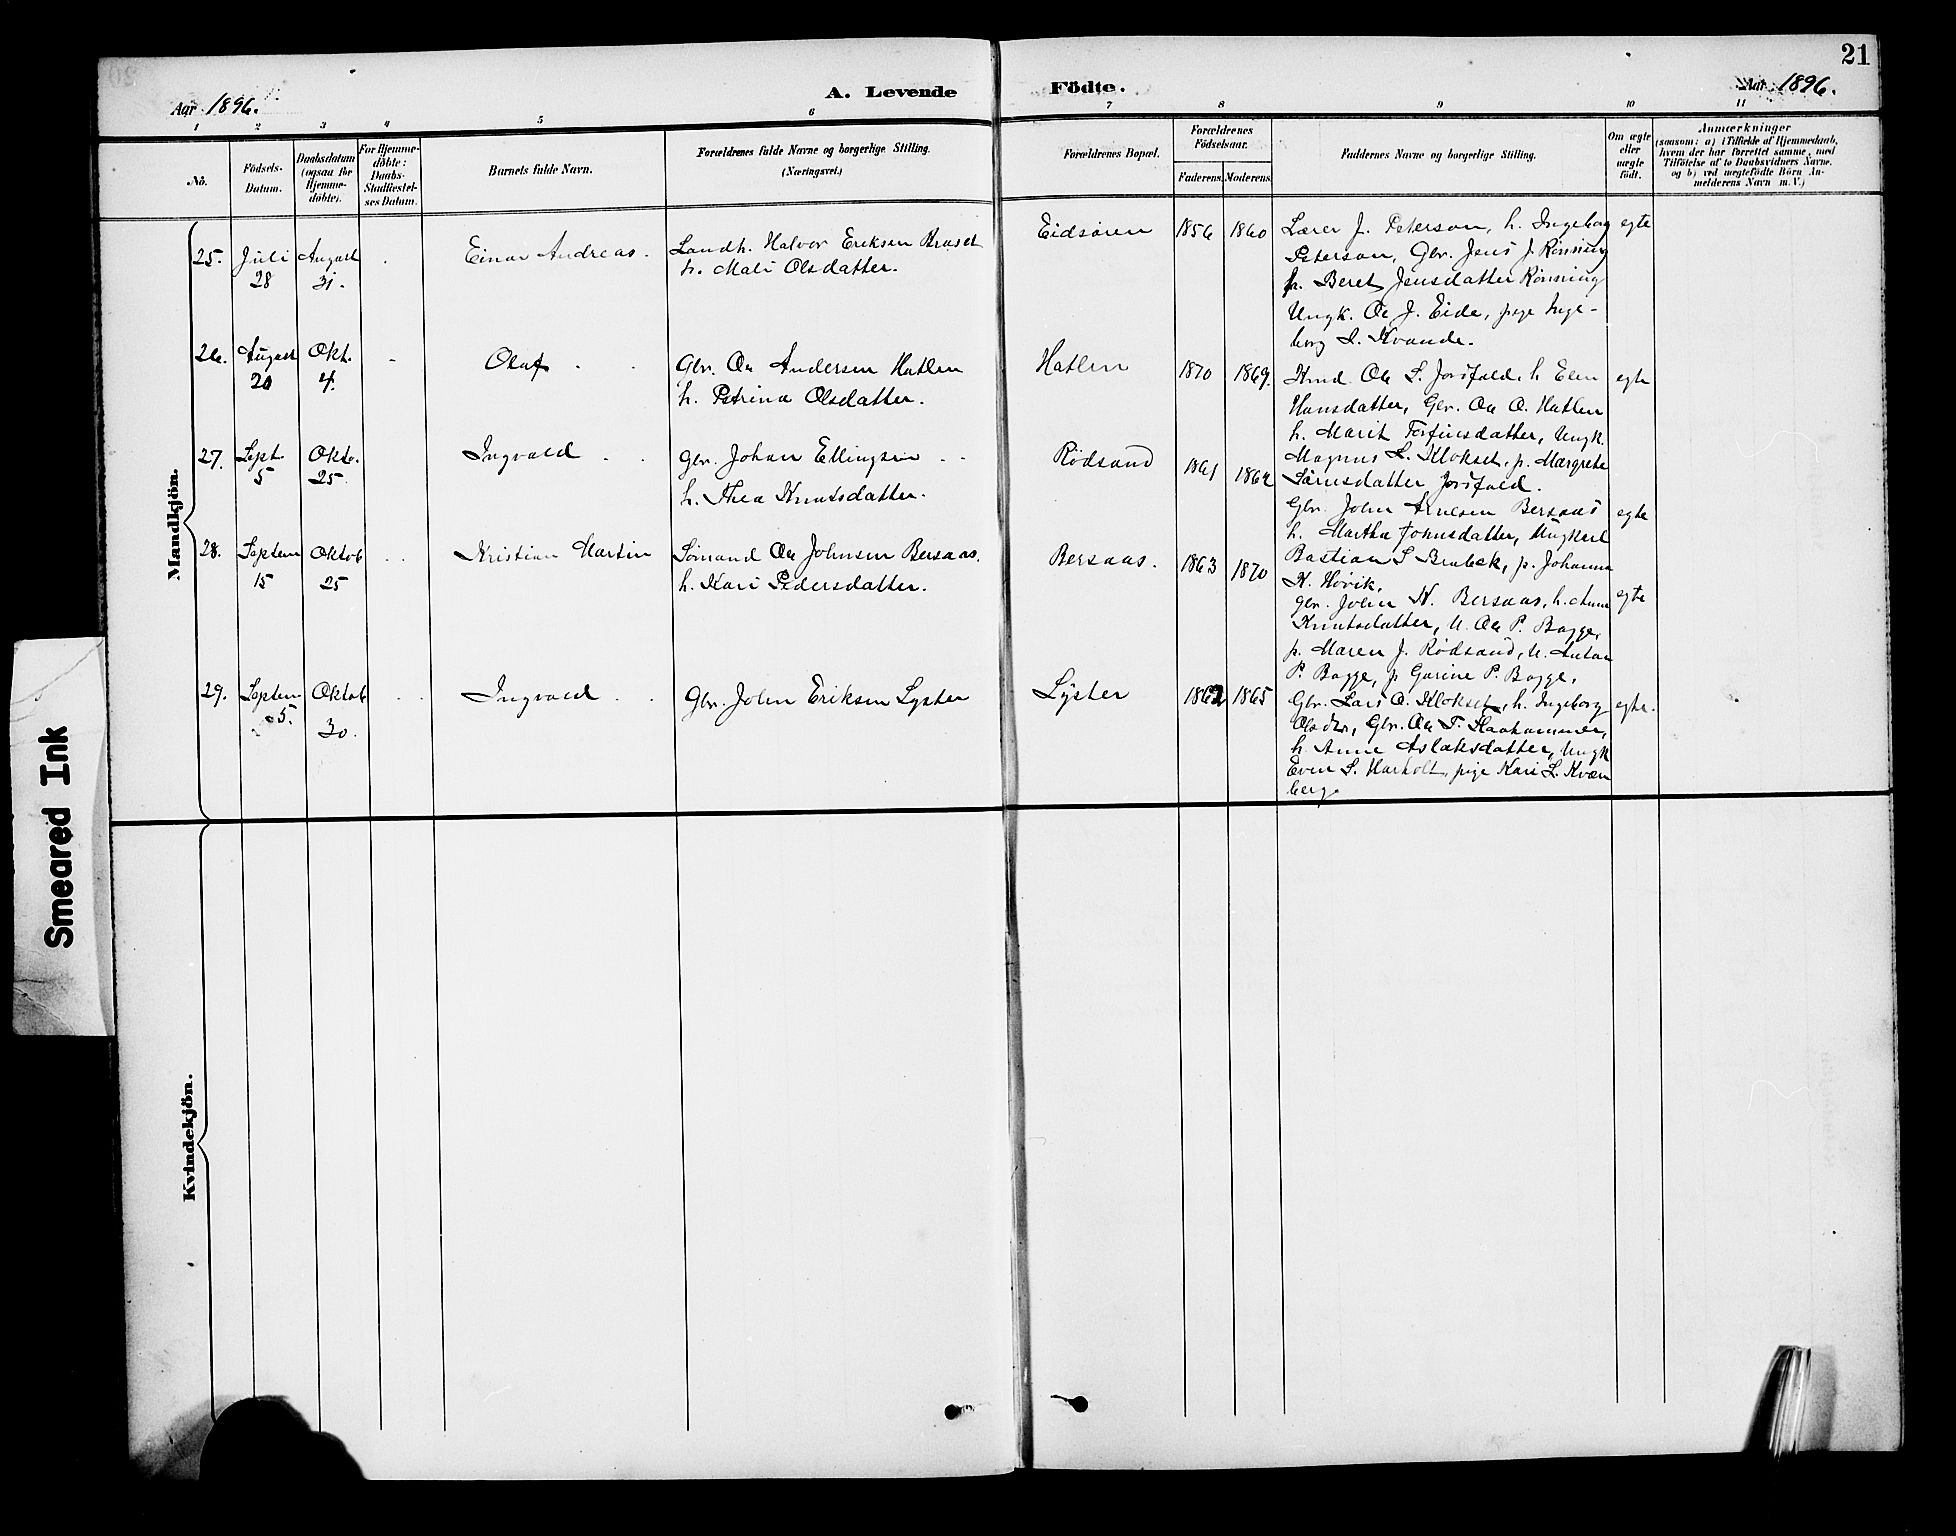 21
Aar 1896.
A. Levende Födte.
Aar 1896.
1 2 3 4 5 6 7 8 9 10 11
No.
Födsels-Datum.
Daabsdatum (ogsaa for Hjemme-döbte).
For Hjemme-döbte: Daabs-Stadfæstel-ses Datum.
Barnets fulde Navn.
Forældrenes fulde Navne og borgerlige Stilling.
(Næringsvei.)
Forældrenes Bopæl.
Forældrenes Födselsaar.
Faderens. Moderens.
Faddernes Navne og borgerlige Stilling.
Om ægte eller uægte födt.
Anmærkninger
(saasom: a) i Tilfælde af Hjemmedaab,
hvem der har forrettet samme, med
Tilföielse af to Daabsvidners Navne.
og b) ved uægtefödte Börn An-
melderens Navn m. V.)
Mandkjön.
25. Juli 28 August 31. Einar Andreas.
Landh. Halvor Eriksen Bruset
h. Mali Olsdatter.
Eidsören 1856 1860
Lærer J. Peterson, h. Ingeborg
Peterson, Gbr. Jens J. Rönning
p. Beret Jensdatter Rönning
Ungk. Ole J. Eide, pige Inge-
borg I. Kvande.
egte
26. August 20 Okt. 4. Olaf
Gbr. Ole Andersen Hatlen
h. Petrina Olsdatter.
Hatlen 1870 1869.
Ole S. Jorsfald, h. Elen
Hansdatter, Gbr. Ole O. Hatlen
h. Marit Torfinsdatter, Ungk.
Magnus L. Klokset, p. Margrete
Jorsfald.
egte
27. Sept. 5 Okto. 25. Ingvald
Gbr. Johan Ellingsen
h. Thea Knutsdatter.
Rødsand 1861 1862
Gbr. John Knutsen Bersaas
h. Martha Johnsdatter, Ungkarl
Bastian S Brubek, p. Johanna
K. Hövik,
egte
28. Septem 15 Oktob 25 Kristian Martin
Sömand Ole Johnsen Bersaas.
h. Kari Pedersdatter.
Bersaas. 1863 1870
Gbr. John K. Bersaas, h. Anne
Knutsdatter, U. Ole P. Bogge,
p. Maren J. Rödsand, U. Anton
P. Bogge, p Gurine P. Bogge,
egte
29. Septem 5. Oktob 30. Ingvald
Gbr. John Eriksen Lyster
Lyster 1862 1865
Gbr. Lars O. Klokset, h. Ingeborg
Olsdtr, Gbr. Ole T. Haahammer,
h. Anne Aslaksdatter, Ungk
Even S. Harholt, pige Kari L. Kværn
berg.
egte.
Kvindekjön.
Smeared Ink